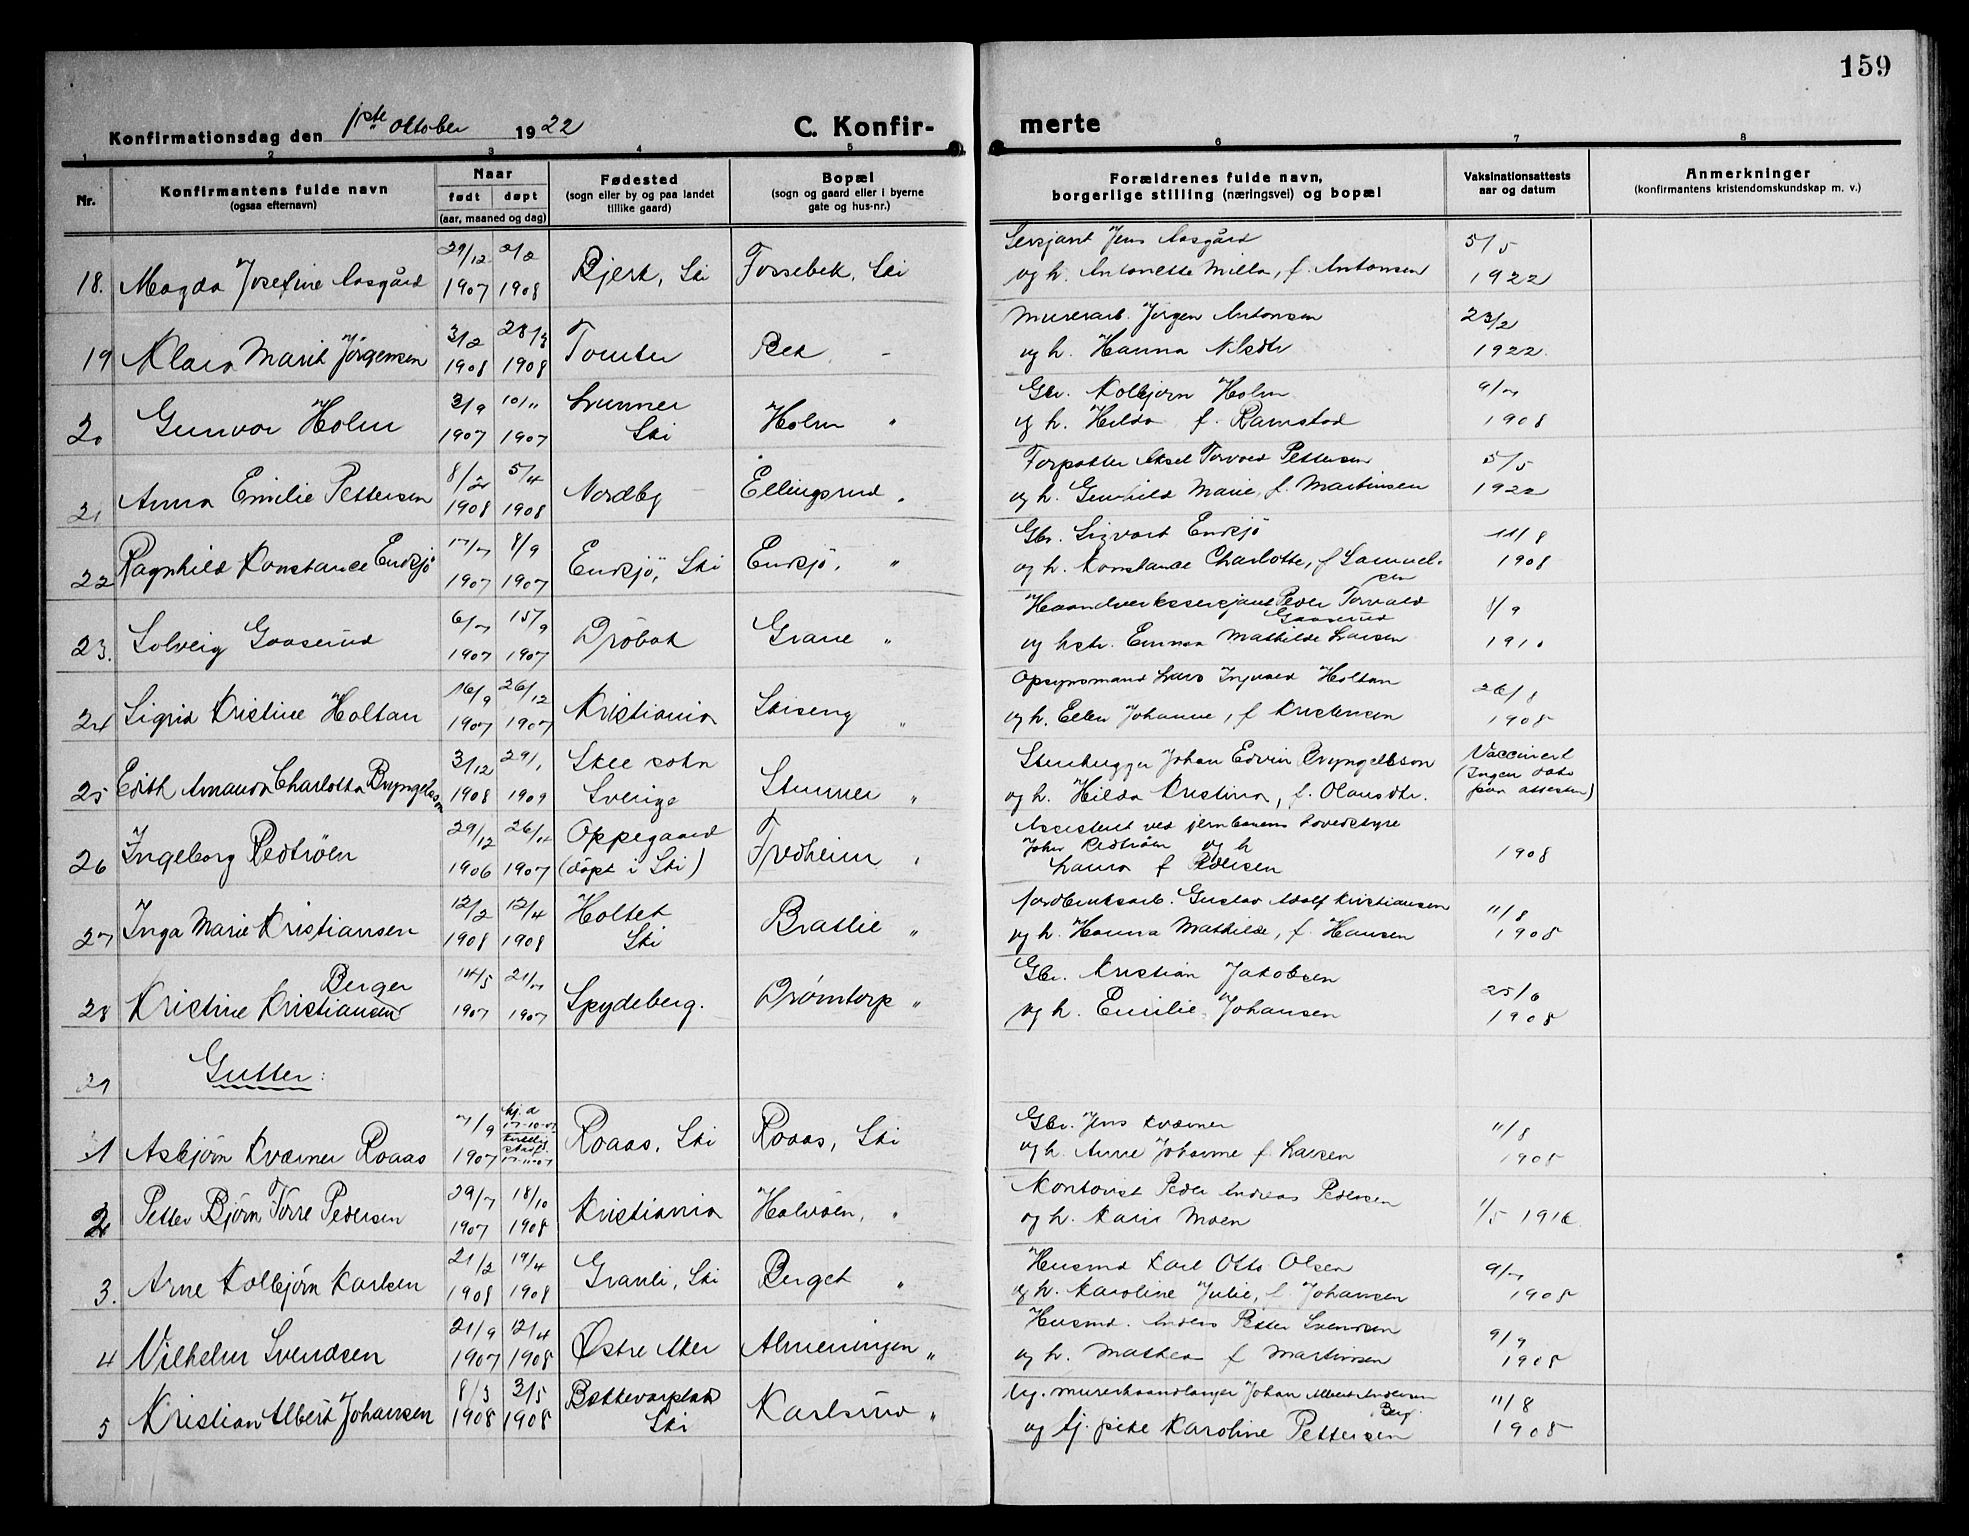 159
Konfirmationsdag den 1ste oktober 1922 C. Konfirmerte
1 2 3 4 5 6 7 8
Nr. Konfirmantens fulde navn (ogsaa efternavn) Naar født døpt (aar, maaned og dag) Fødested (sogn eller by og paa landet tillike gaard) Bopæl (sogn og gaard eller i byerne gate og hus-nr.) Forældrenes fulde navn, borgerlige stilling (næringsvei) og bopæl Vaksinationsattests aar og datum Anmerkninger (konfirmantens kristendomskundskap m. v.)
18. Magda Josefine Aasgård 29/12 1907 2/2 1908 Bjerk, Ski Fossebek, Ski Sersjant Jens Aasgård
og h. Antonette Milla, f. Antonsen 5/5 1922
19 Klara Marit Jörgensen 3/2 1908 28/3 1908 Tomter Rek - Murerarb. Jörgen Antonsen
og h. Hanna Nilsdtr 23/2 1922.
20 Gunvor Holm 3/9 1907 10/11 1907 Lunner Ski Holm " Gbr. Kolbjørn Holm
og h. Hilda f. Ramstad 9/7 1908
21 Anna Emilie Pettersen 8/2 1908 5/4 1908 Nordby - Ellingsrud " Forpakter Aksel Torvald Pettersen
og h. Gunhild Marie, f. Martinsen 5/5 1922
22 Ragnhild Konstance Endsjö 17/7 1907 8/9 1907 Endsjö, Ski Endsjö, " Gbr. Sigvart Endsjö
og h. Konstance Charlotte, f Samuelsen 11/8 1908
23. Solveig Gaaserud 6/7 1907 15/9 1907 Dröbak Grane " Haandverkssersjant Peder Torvald Gaaserud
og hstr. Emma Mathilde Larsen 1/9 1910
24 Sigrid Kristine Holtan 16/9 1907 26/12 1907 Kristiania Skiseng " Opsynsmand Lars Ingvald Holtan
og h. Ellen Johanne, f Kristensen 26/8 1908
25 Edith Amanda Charlotta Bryngelsson 3/12 1908 29/1 1909 Skee sokn Sverige Stunner " Stenhugger Johan Edvin Bryngelsson
og h. Hilda Kristina, f. Olausdtr. Vaccinert (Ingen dato paa attesten)
26 Ingeborg Rediröen 29/12 1906 26/11 1907 Oppegaard (döpt i Ski) Fredheim " Assistent ved jernbanens hovedstyre
John Rediröen og h
Laura f Pedersen 1908
27 Inga Marie Kristiansen 12/2 1908 12/4 1908 Holtet Ski Bratlie " Jordbruksarb. Gustav Adolf Kristiansen
og h. Hanna Mathilde, f. Hansen 11/8 1908
28 Kristine Kristiansen Berger 14/5 1907 21/7 1907 Spydeberg. Drømtorp " Gbr. Kristian Jakobsen
og h. Emilie Johansen 25/6 1908
29 Gutter:
1 Asbjørn Kværner Roaas 7/9 1907 hj. d 17-10-07 kirkelig stadf. 17-11-07 Roaas, Ski Roaas, Ski Gbr. Jens Kværner
og h. Anne Johanne f. Larsen 11/8 1908
2 Petter Bjørn Torre Pedersen 29/7 1907 18/10 1908 Kristiania Halvöen, " Kontorist Peder Andreas Pedersen
og h. Karin Moen 1/5 1916.
3. Arne Kolbjörn Karlsen 21/2 1908 19/4 1908 Granli, Ski Berget " Husmd Karl Otto Olsen
og h. Karoline Julie, f. Johansen 9/7 1908
4 Vilhelm Svendsen 21/9 1907 12/4 1908 Østre Aker Almeningen " Husmd. Anders Petter Svendsen
og h. Mathea f Martinsen 9/9 1908
5 Kristian Albert Johansen 8/3 1908 3/5 1908 Bøkkevarplads Ski Karlsrud " Ug. murerhaandlanger Johan Albert Andersen Berg.
og tj. pike Karoline Pettersen 11/8 1908